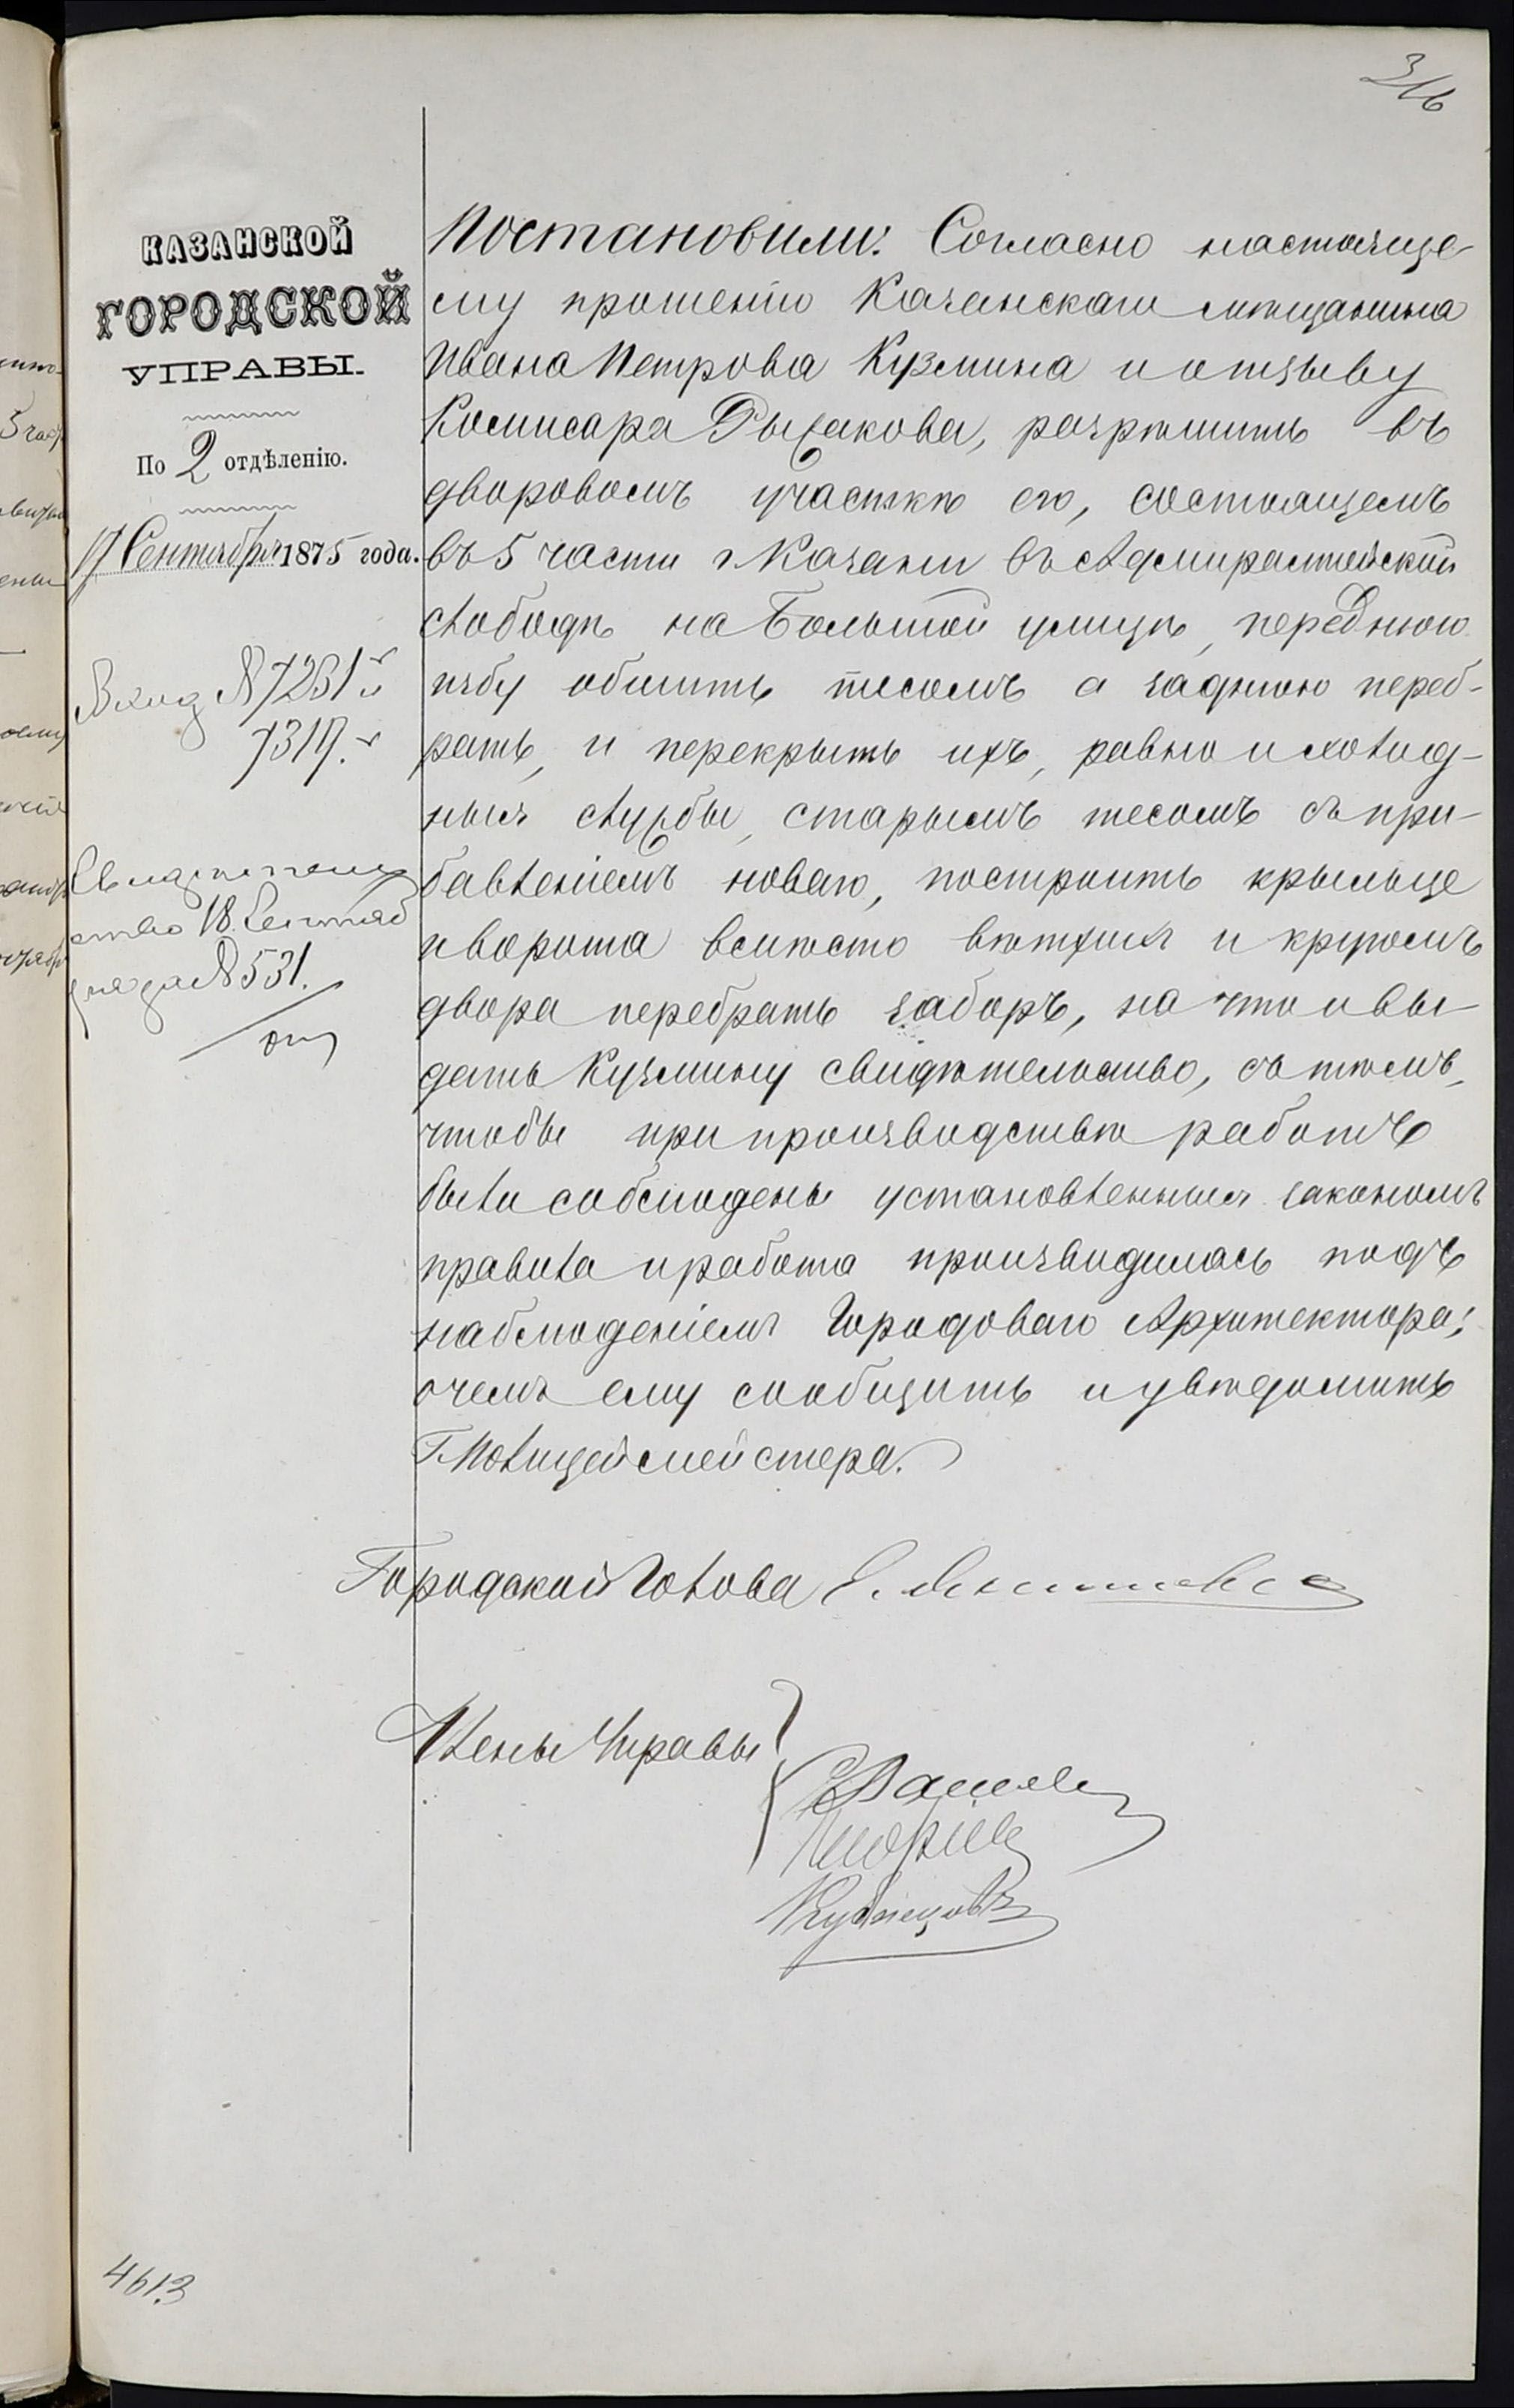 316
КАЗАНСКОЙ
ГОРОДСКОЙ
УПРАВЫ.
По 2 отдѣленію.
17 Сентября 1875 года.
Вход № 7251 и
7319.
Свидѣтель
ство 18 Сентяб
ря за № 531.
Постановили: Согласно настояще-
му прошенію Казанскаго мѣщанина
Ивана Петрова Кузмина и отзыву
Коммисара Рыбакова, разрѣшить въ
дворовомъ участкѣ его, состоящемъ
въ 5 части г Казани въ Адмиралтейской
слободѣ на Большой улицѣ, переднюю
избу обшить тесомъ а заднюю переб-
рать, и перекрыть ихъ, равно и холод-
ныя службы, старымъ тесомъ съ при-
бавленіемъ новаго, построить крыльце
и ворота вмѣсто ветхихъ и кругомъ
двора перебрать заборъ, на что и вы-
дать Кузмину свидѣтельство, съ тѣмъ,
чтобы при производствѣ работъ
были соблюдены установленныя закономъ
правила и работа производилась подъ
наблюденіемъ Городоваго Архитектора;
о чемъ ему сообщить и увѣдомить
Г Полицеймейстера.
Городской Голова Е.
Члены Управы
Кузнецовъ
4613